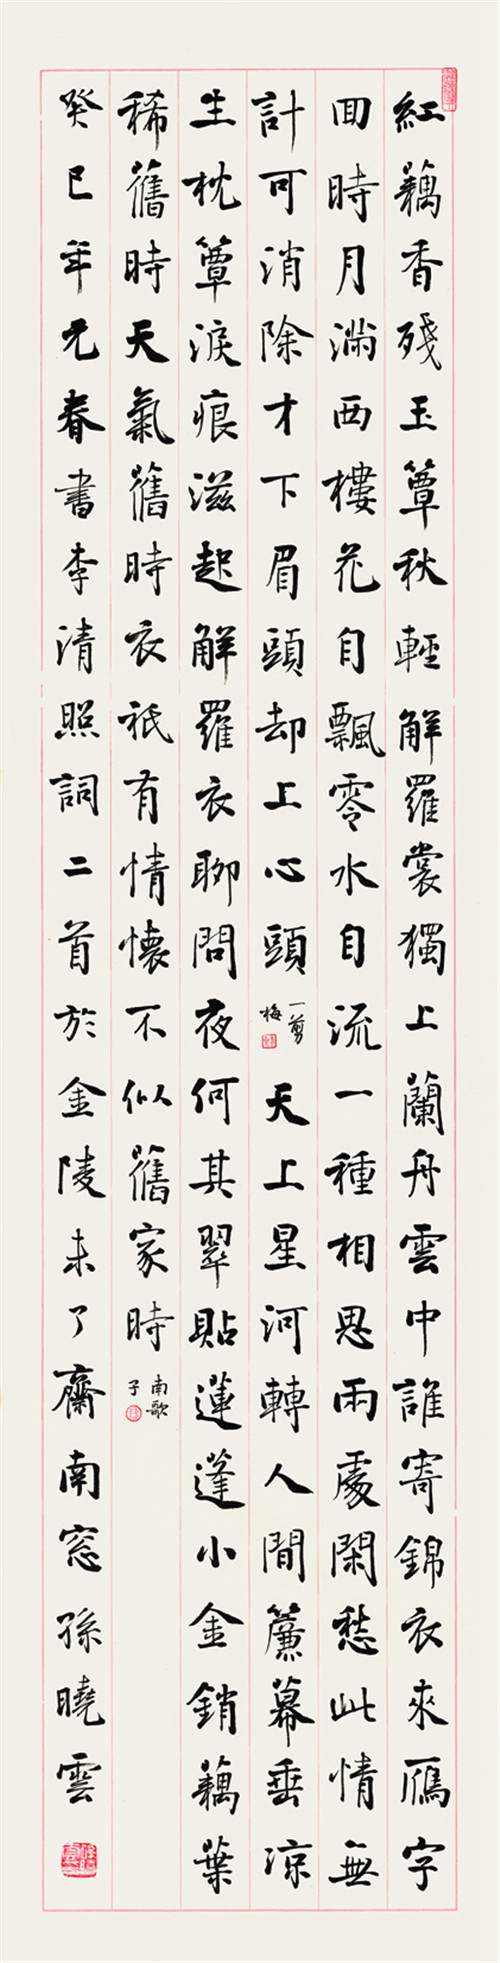 紅藕香殘玉簟秋輕解羅裳獨上蘭舟雲中誰寄錦衣來鴈字
回時月滿西樓花自飄零水自流一種相思兩處閑愁此情無
計可消除才下眉頭却上心頭一剪梅天上星河轉人間簾幕垂涼
生枕簟淚痕滋起解羅衣聊問夜何其翠貼蓮蓬小金銷藕葉
稀舊時天氣舊時衣衹有情懷不似舊家時南歌子
癸巳年元春書李清照詞二首於金陵未了齋南窓孫曉雲